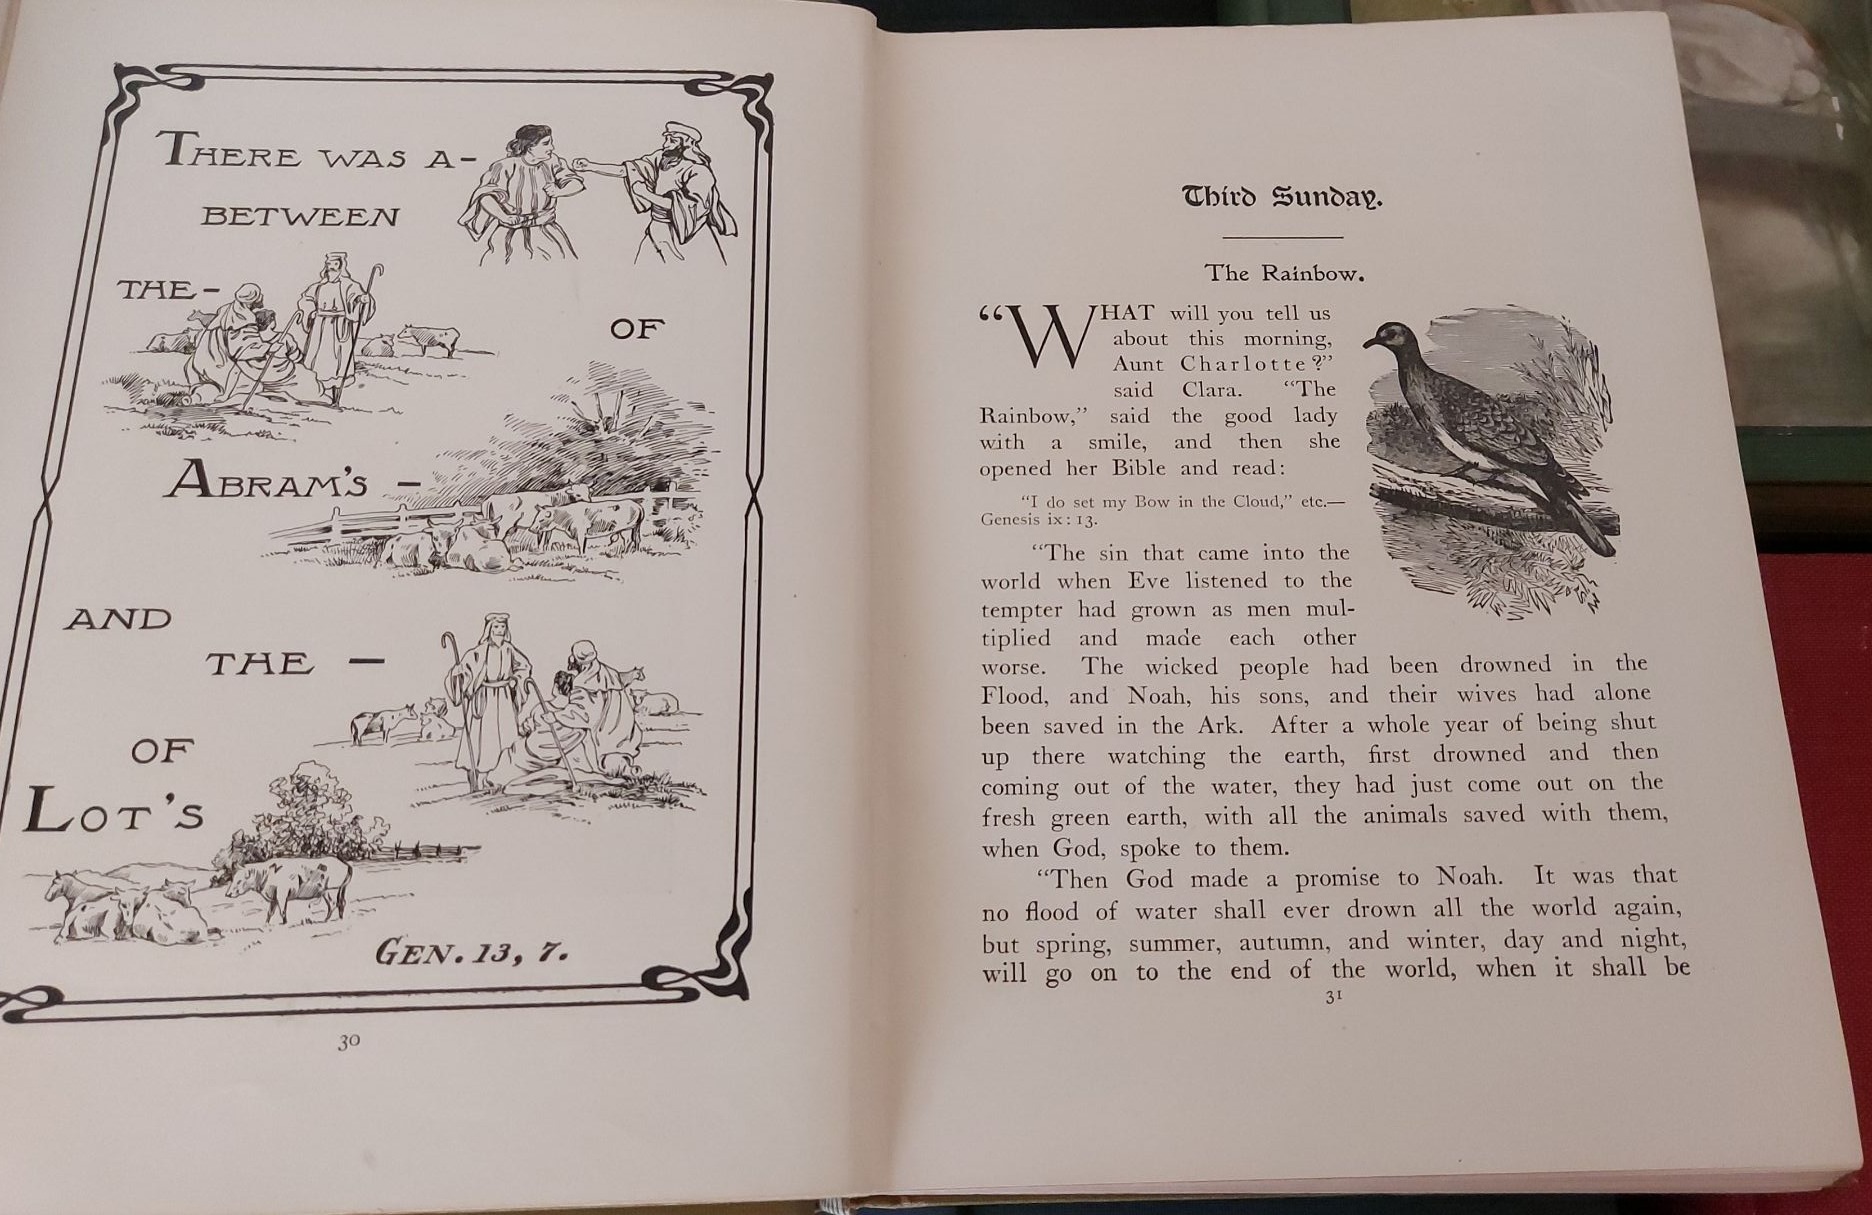 THERE WAS A-
BETWEEN
THE-
OF
ABRAM'S -
AND
THE —
OF
LOT'S
GEN. 13, 7.
30
Third Sunday.
The Rainbow.
“WHAT will you tell us
about this morning,
Aunt Charlotte?”
said Clara. “The
Rainbow,” said the good lady
with a smile, and then she
opened her Bible and read:
“I do set my Bow in the Cloud,” etc.—
Genesis ix: 13.
“The sin that came into the
world when Eve listened to the
tempter had grown as men mul-
tiplied and made each other
worse. The wicked people had been drowned in the
Flood, and Noah, his sons, and their wives had alone
been saved in the Ark. After a whole year of being shut
up there watching the earth, first drowned and then
coming out of the water, they had just come out on the
fresh green earth, with all the animals saved with them,
when God, spoke to them.
“Then God made a promise to Noah. It was that
no flood of water shall ever drown all the world again,
but spring, summer, autumn, and winter, day and night,
will go on to the end of the world, when it shall be
31